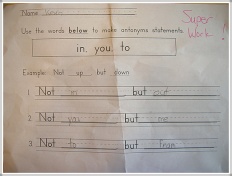 Name James
Super
Work !
Use the words below to make antonyms statements.
in, you, to
Example: Not up but down
1. Not in but out
2. Not you but me
3. Not to but from